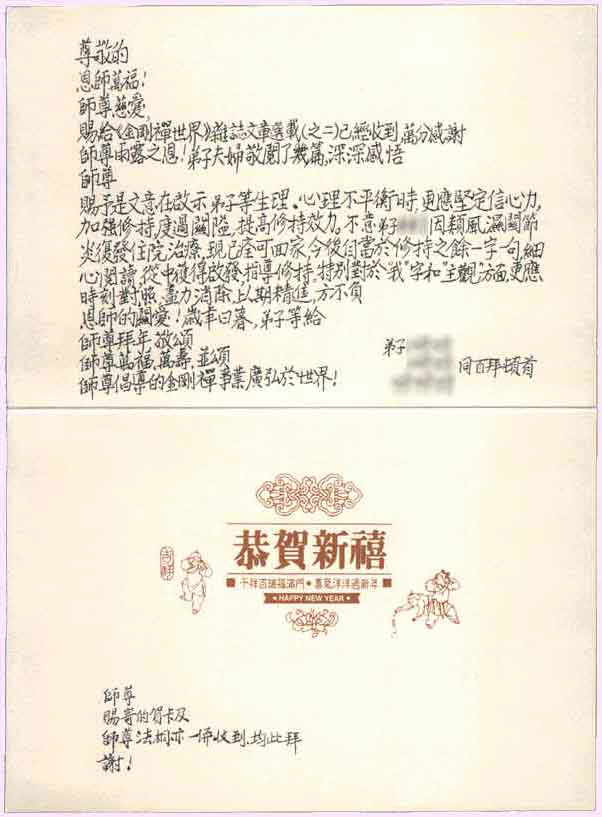 尊敬的
恩師萬福!
師尊慈愛,
賜給《金剛禪世界》雜誌文章選載(之二)已經收到萬分感謝
師尊雨露之恩!弟子夫婦敬閱了幾篇,深深感悟
師尊
賜予是文意在啟示弟子等生理、心理不平衡時,更應堅定信心力,
加強修持,度過關隘,提高修持效力,不意弟子 因類風濕關節
炎復發住院治療,現已痊可回家,今後自當於修持之餘一字一句,細
心閱讀,從中獲得啟發指導修持,特別對於“我”字和“主觀”方面,更應
時刻對照,盡力消除,以期精進,方不負
恩師的關愛!歲聿曰暮,弟子等給
師尊拜年,敬頌
師尊萬福,萬壽,並頌
師尊倡導的金剛禪事業廣弘於世界!
弟子
同百拜頓首
恭賀新禧
吉祥
千祥百瑞福滿門 喜氣洋洋過新年
HAPPY NEW YEAR
師尊
賜寄的賀卡及
師尊法相亦一併收到,均此拜
謝!